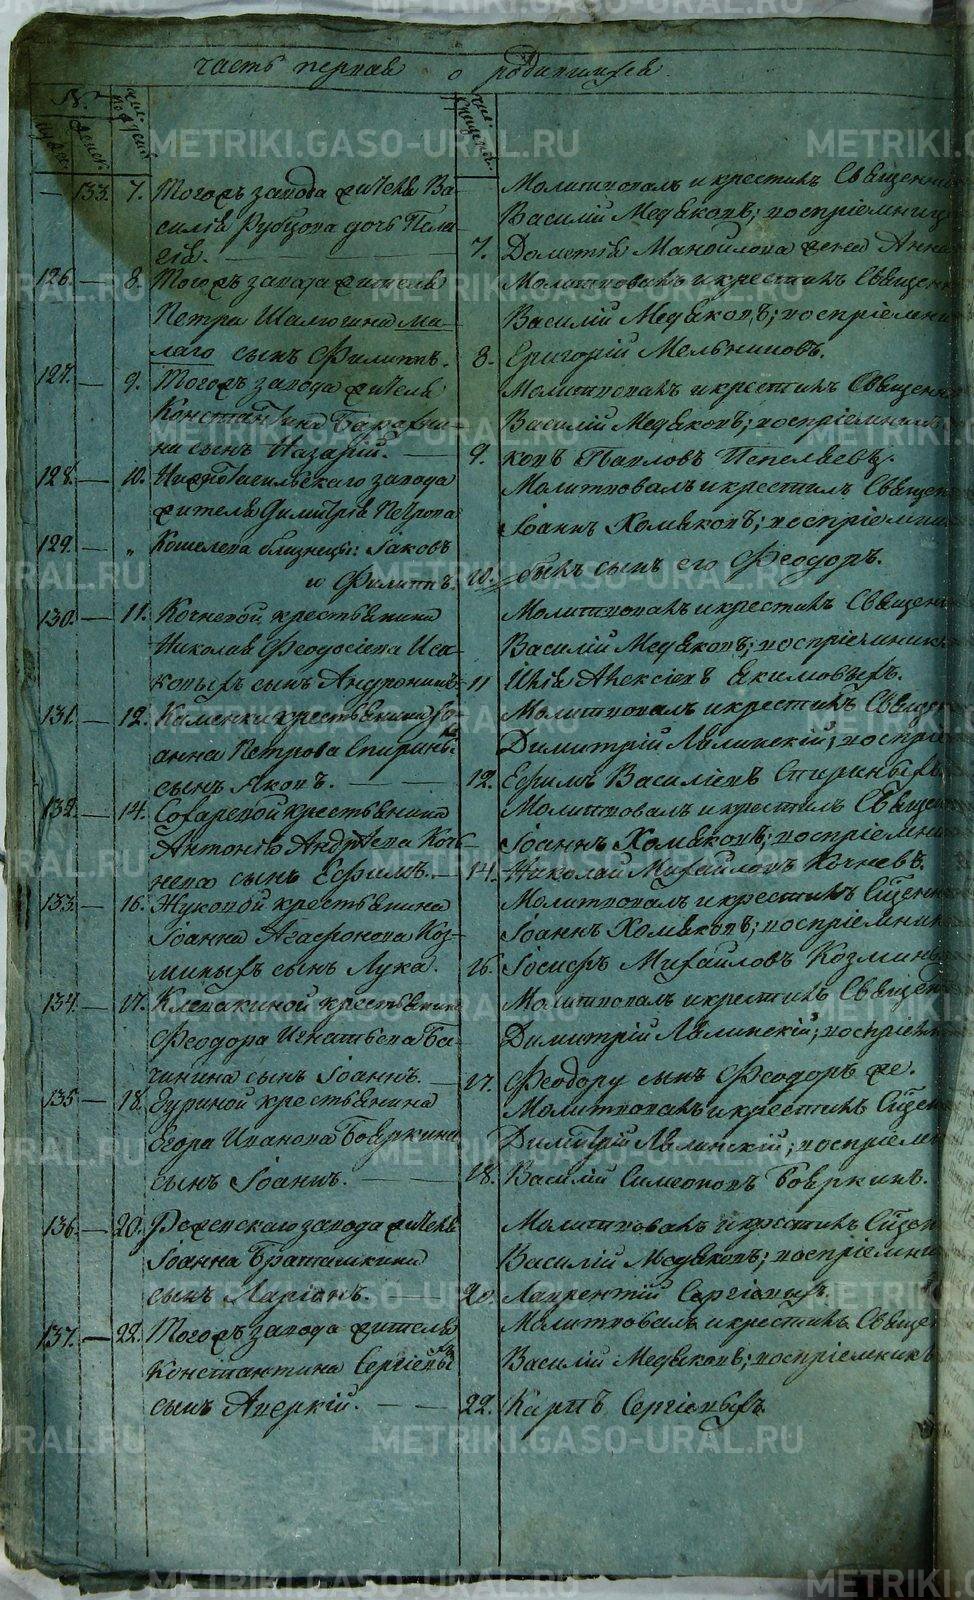 часть первая о родившихся
№
133. 7. Тогожъ завода жителя Ва-
силія Рубцова дочь Пела-
гія.
7.
Молитвовалъ и крестилъ Священ
Василій Медвѣковъ; воспріемниц
Дометія Манойлова жена Анна
126. 8. Тогожъ завода жителя
Петра Шалюгина ма-
лаго сынъ Филиппъ.
8.
Молитвовалъ и крестилъ Священ
Василій Медвѣковъ; воспріемни
Григорій Мельниковъ.
127. 9. Тогожъ завода жителя
Константина
сынъ Назарій.
9.
Молитвовалъ и крестилъ Священ
Василій Медвѣковъ; воспріемникъ
Павловъ Пепеляевъ.
128. 10. Нижнотагильскаго завода
жителя Димитрія Петрова
129. „ Кошелева близнецы: Іаковъ
и Филиппъ.
10.
Молитвовалъ и крестилъ Священ
Іоаннъ Хомяковъ; воспріемни
былъ сынъ его Феодоръ.
130. 11. Кочневой крестьянина
Николая Феодосіева Иса-
ковыхъ сынъ Андроникъ
11
Молитвовалъ и крестилъ Священ
Василій Медвѣковъ; воспріемникъ
Илія Алексіевъ Екимовыхъ.
131. 12. Каменки крестьянина Іо-
анна Петрова Спирины
сынъ Яковъ.
12.
Молитвовалъ и крестилъ Священ
Димитрій Лялинскій; воспріе
Ефимъ Василіевъ Спириныхъ
132. 14. Сохаревой крестьянина
Антонія Андреева Коч-
нева сынъ Ефимъ.
14.
Молитвовалъ и крестилъ Священ
Іоаннъ Хомяковъ; воспріемни
Николай Михайловъ Кочневъ.
133. 16. Жуковой крестьянина
Іоанна Агафонова Коз-
миныхъ сынъ Лука.
16.
Молитвовалъ и крестилъ Сщенн
Іоаннъ Хомяковъ; воспріемни
Іосифъ Михайловъ Козмины
134. 17. Клевакиной крестьянина
Феодора Игнатьева Ба-
чинина сынъ Іоаннъ.
17.
Молитвовалъ и крестилъ Священ
Димитрій Лялинскій; воспріем
Феодору сынъ Феодоръ же.
135 18. крестьянина
Егора Иванова Бояркина
сынъ Іоаннъ.
18.
Молитвовалъ и крестилъ Сщен
Димитрій Лялинскій; воспріем
Василій Симеоновъ Бояркинъ.
136 20. Режевскаго завода жителя
Іоанна Браташкина
сынъ Ларіонъ.
20.
Молитвовалъ и крестилъ Сщен
Василій Медвѣковъ; воспріемни
Лаврентій Сергіевыхъ.
137. 22. Тогожъ завода жителя
Константина Сергіевы
сынъ Аверкій.
22.
Молитвовалъ и крестилъ Свяще
Василій Медвѣковъ; воспріемникъ
Карпъ Сергіевыхъ.
METRIKI.GASO-URAL.RU